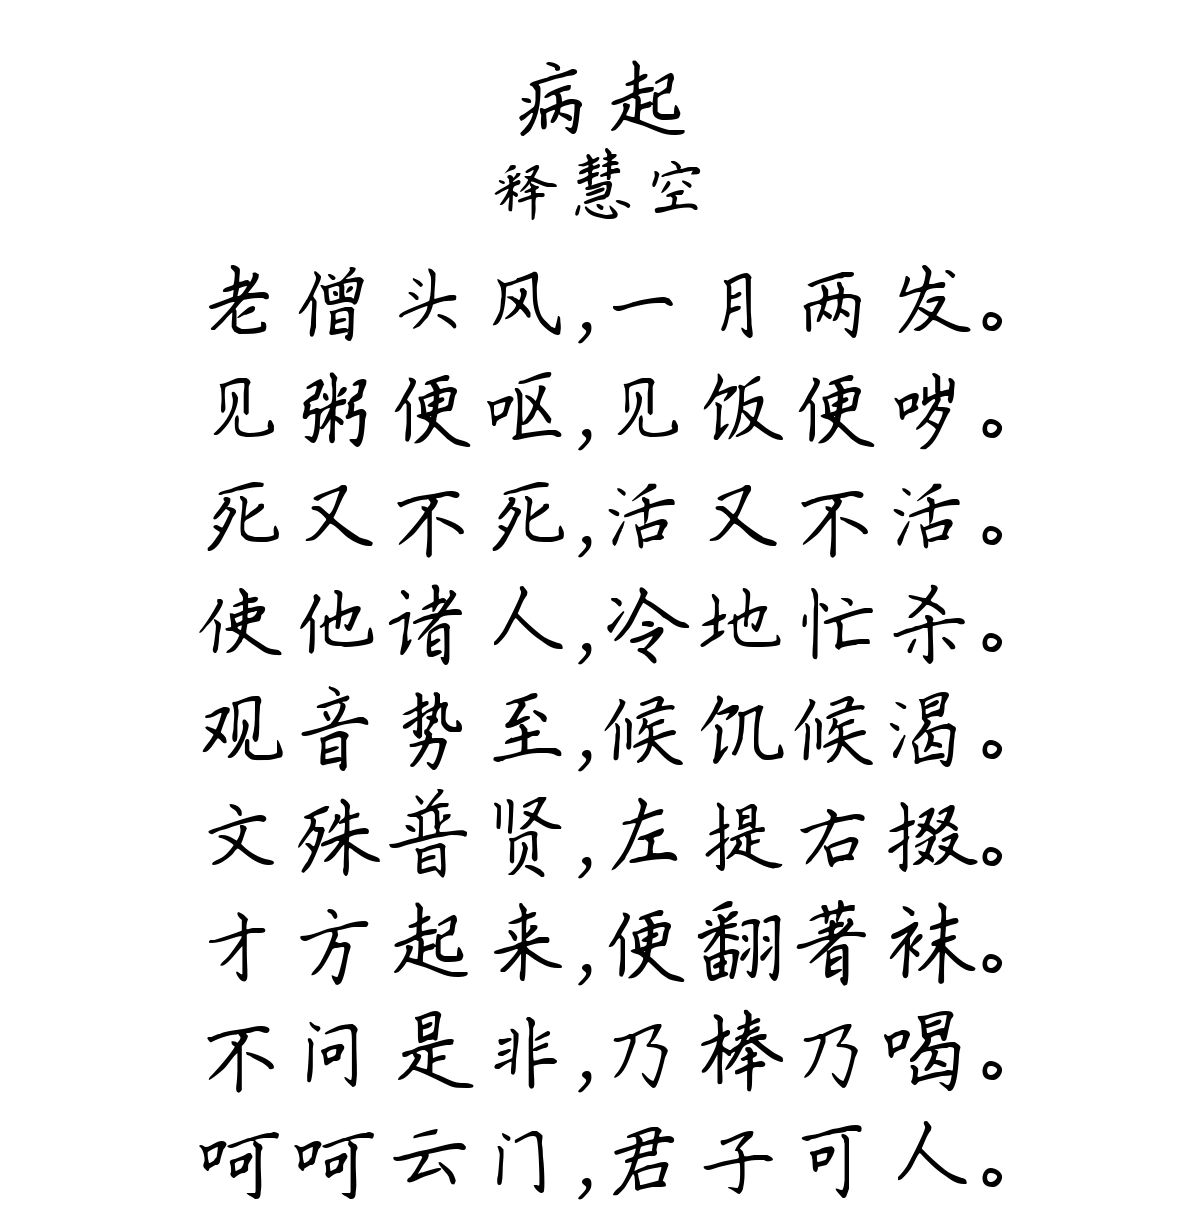 病起
释慧空
老僧头风,一月两发。
见粥便呕,见饭便哕。
死又不死,活又不活。
使他诸人,冷地忙杀。
观音势至,候饥候渴。
文殊普贤,左提右掇。
才方起来,便翻著袜。
不问是非,乃棒乃喝。
呵呵云门,君子可人。